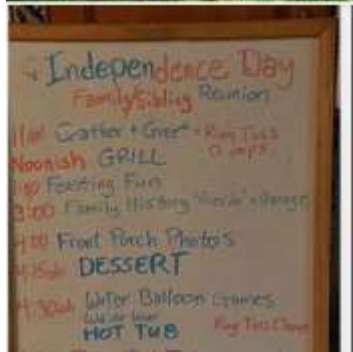 Independence Day
Family/Sibling Reunion
11am Gather + Greet - Ring Toss
Noonish GRILL
Feasting Fun
3:00 Family History
4:00 Front Porch Photo's
DESSERT
4:30ish Water Balloon Games
HOT TUB Ring Toss